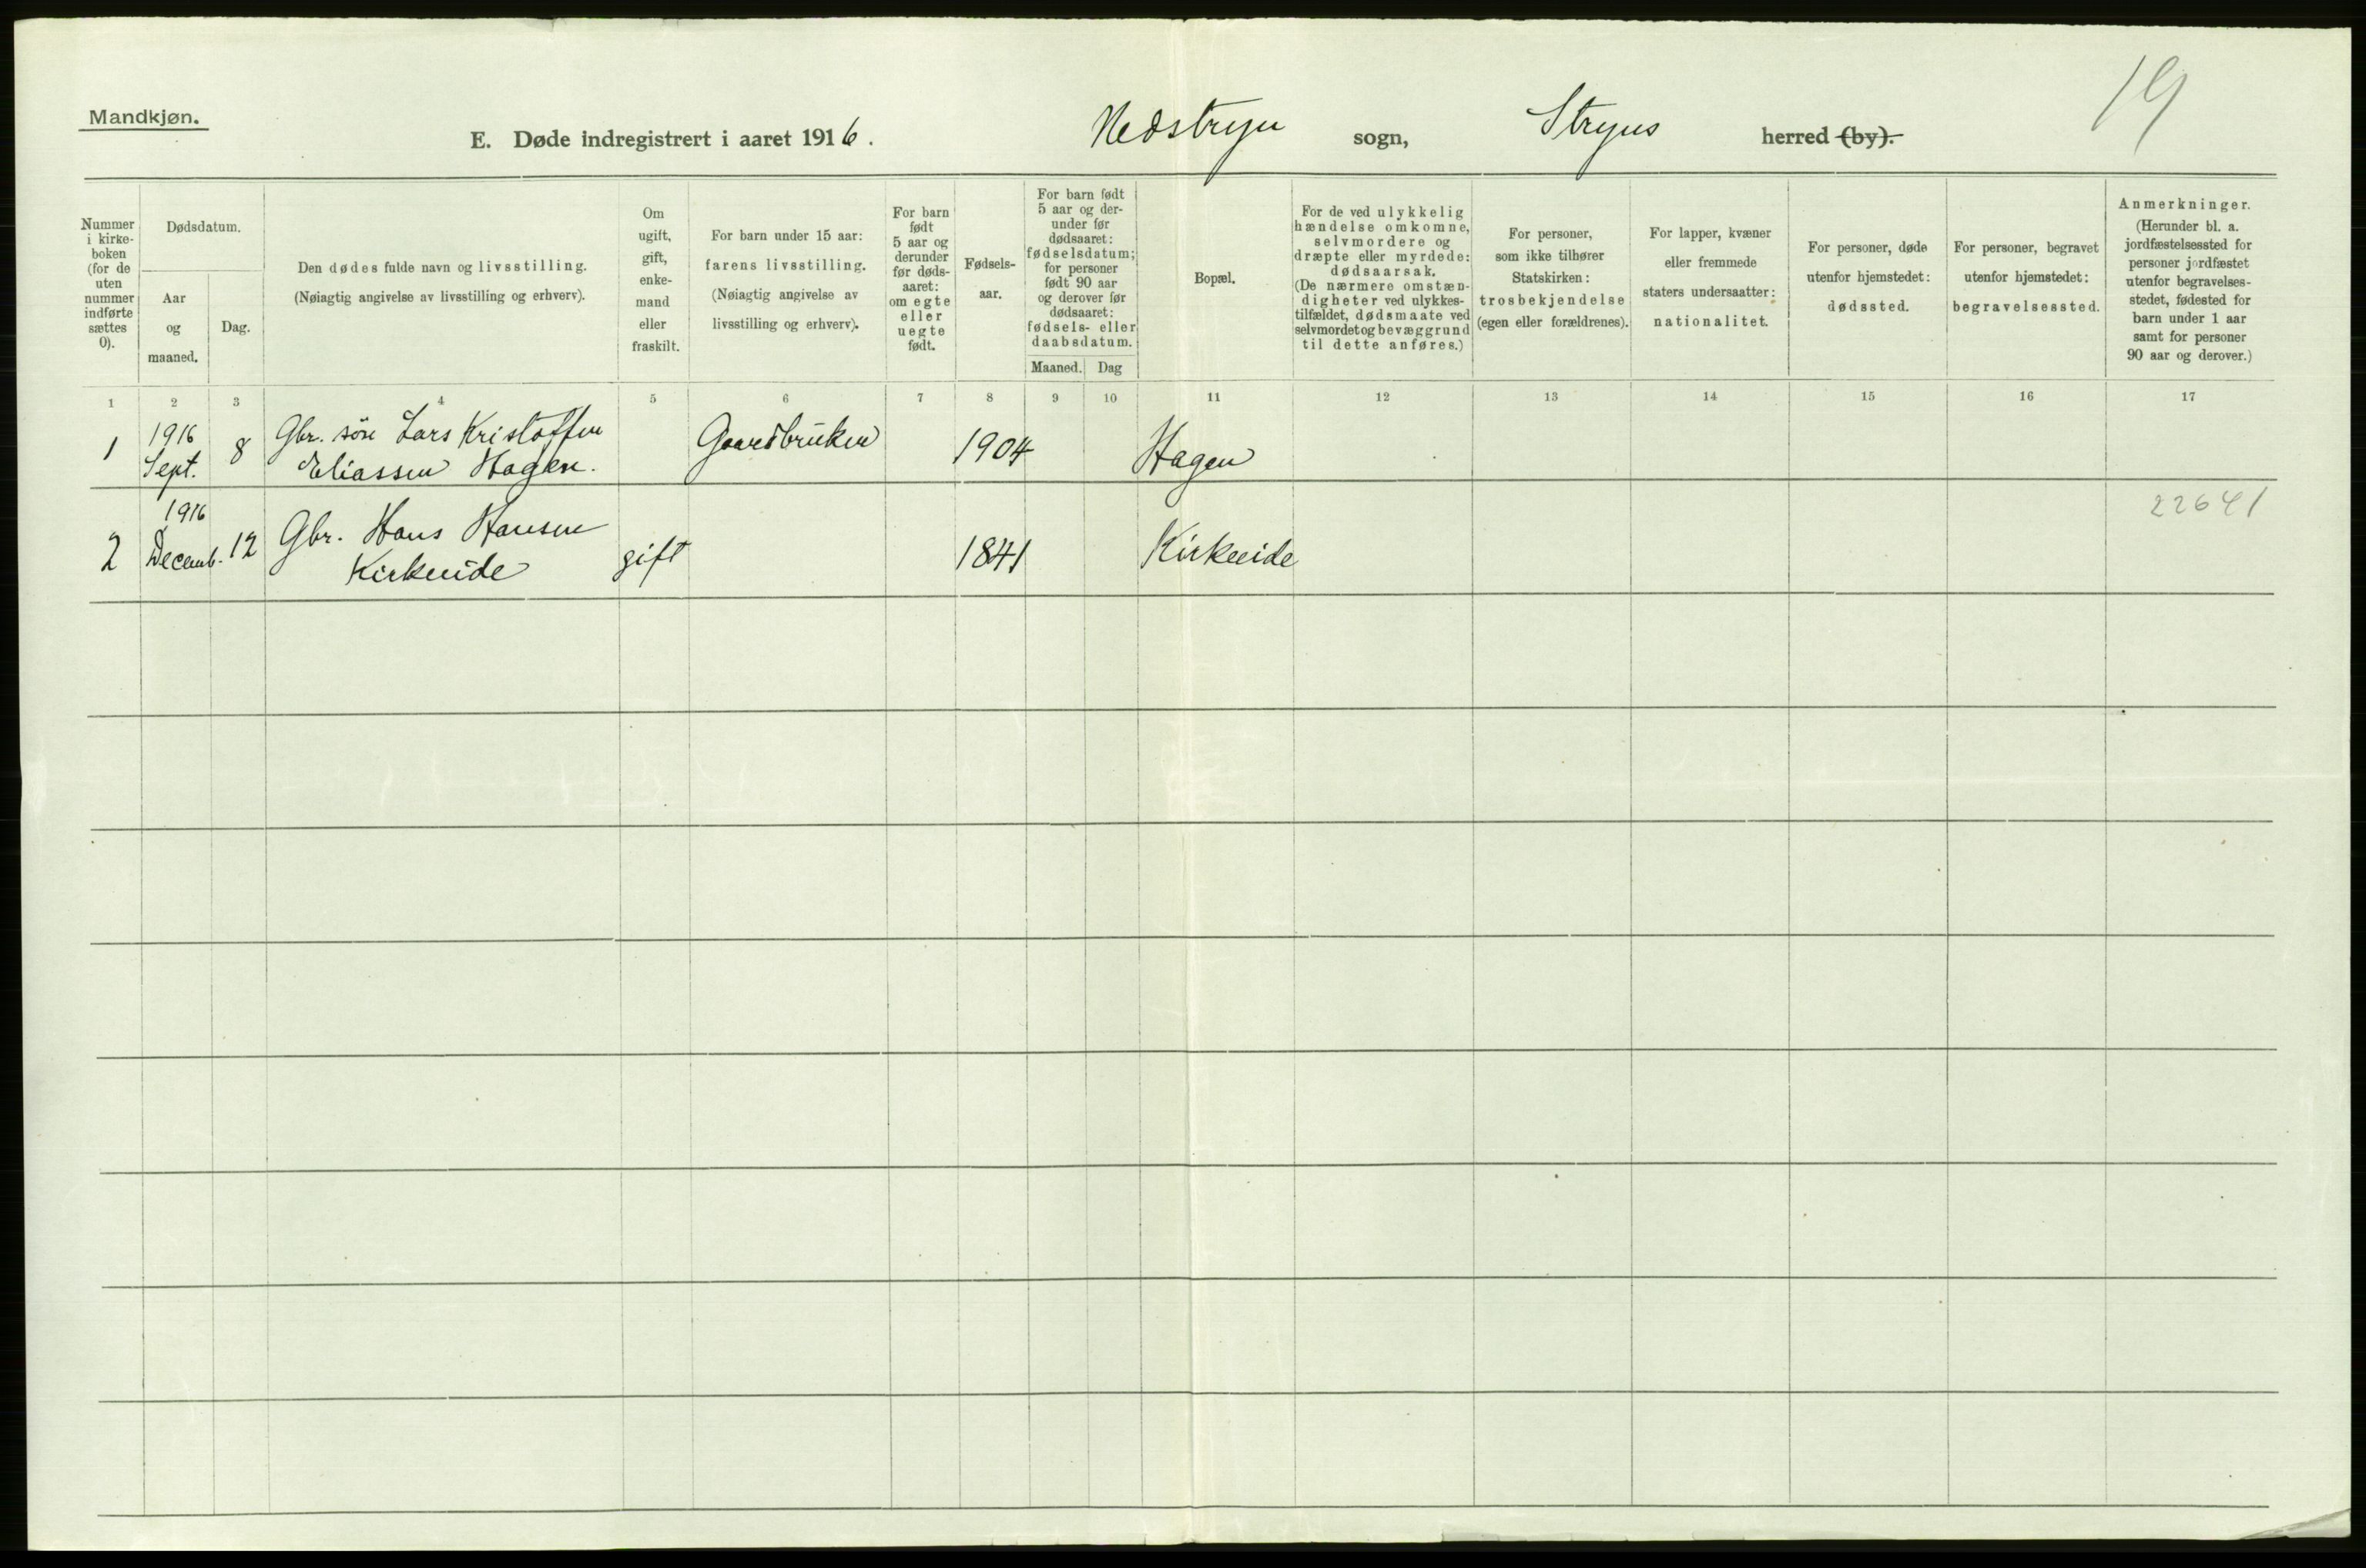 19
Mandkjøn.
E. Døde indregistrert i aaret 1916. Nedstryn sogn, Stryns herred (by).
Nummer
i kirke-
boken
(for de
uten
nummer
indførte
sættes
0).
Dødsdatum.
Aar
og
maaned.
Dag.
Den dødes fulde navn og livsstilling.
(Nøiagtig angivelse av livsstilling og erhverv).
Om
ugift,
gift,
enke-
mand
eller
fraskilt.
For barn under 15 aar:
farens livsstilling.
(Nøiagtig angivelse av
livsstilling og erhverv).
For barn
født
5 aar og
derunder
før døds-
aaret:
om egte
eller
uegte
født.
Fødsels-
aar.
For barn født
5 aar og der-
under før
dødsaaret:
fødselsdatum;
for personer
født 90 aar
og derover før
dødsaaret:
fødsels- eller
daabsdatum.
Maaned.
Dag
Bopæl.
For de ved ulykkelig
hændelse omkomne,
selvmordere og
dræpte eller myrdede:
dødsaarsak.
(De nærmere omstæn-
digheter ved ulykkes-
tilfældet, dødsmaate ved
selvmordet og bevæggrund
til dette anføres.)
For personer,
som ikke tilhører
Statskirken:
trosbekjendelse
(egen eller forældrenes).
For lapper, kvæner
eller fremmede
staters undersaatter:
nationalitet.
For personer, døde
utenfor hjemstedet:
dødssted.
For personer, begravet
utenfor hjemstedet:
begravelsessted.
Anmerkninger.
(Herunder bl. a.
jordfæstelsessted for
personer jordfæstet
utenfor begravelses-
stedet, fødested for
barn under 1 aar
samt for personer
90 aar og derover.)
1 2 3 4 5 6 7 8 9 10 11 12 13 14 15 16 17
1 1916 8 Gbr. søn Lars Kristoffer Gaardbruker 1904 Hagen
Sept. Eliassen Hagen.
1916 22641
2 Decemb. 12 Gbr. Hans Hansen gift 1841 Kirkeeide
Kirkeeide